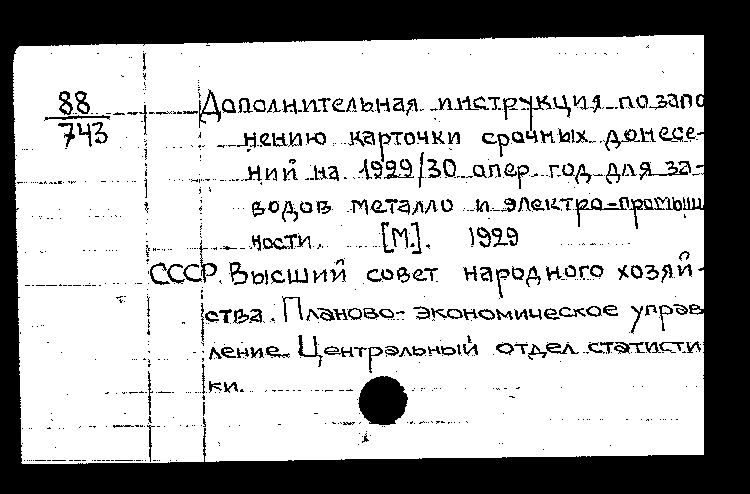 88
743
Дополнительная инструкция по запо
нению карточки срочных донесе-
ний на 1929/30 опер. год для за-
водов металло и электро-промыш
ности. [М.]. 1929
СССР. Высший совет народного хозяй-
ства. Планово-экономическое управ
ление. Центральный отдел статисти
ки.